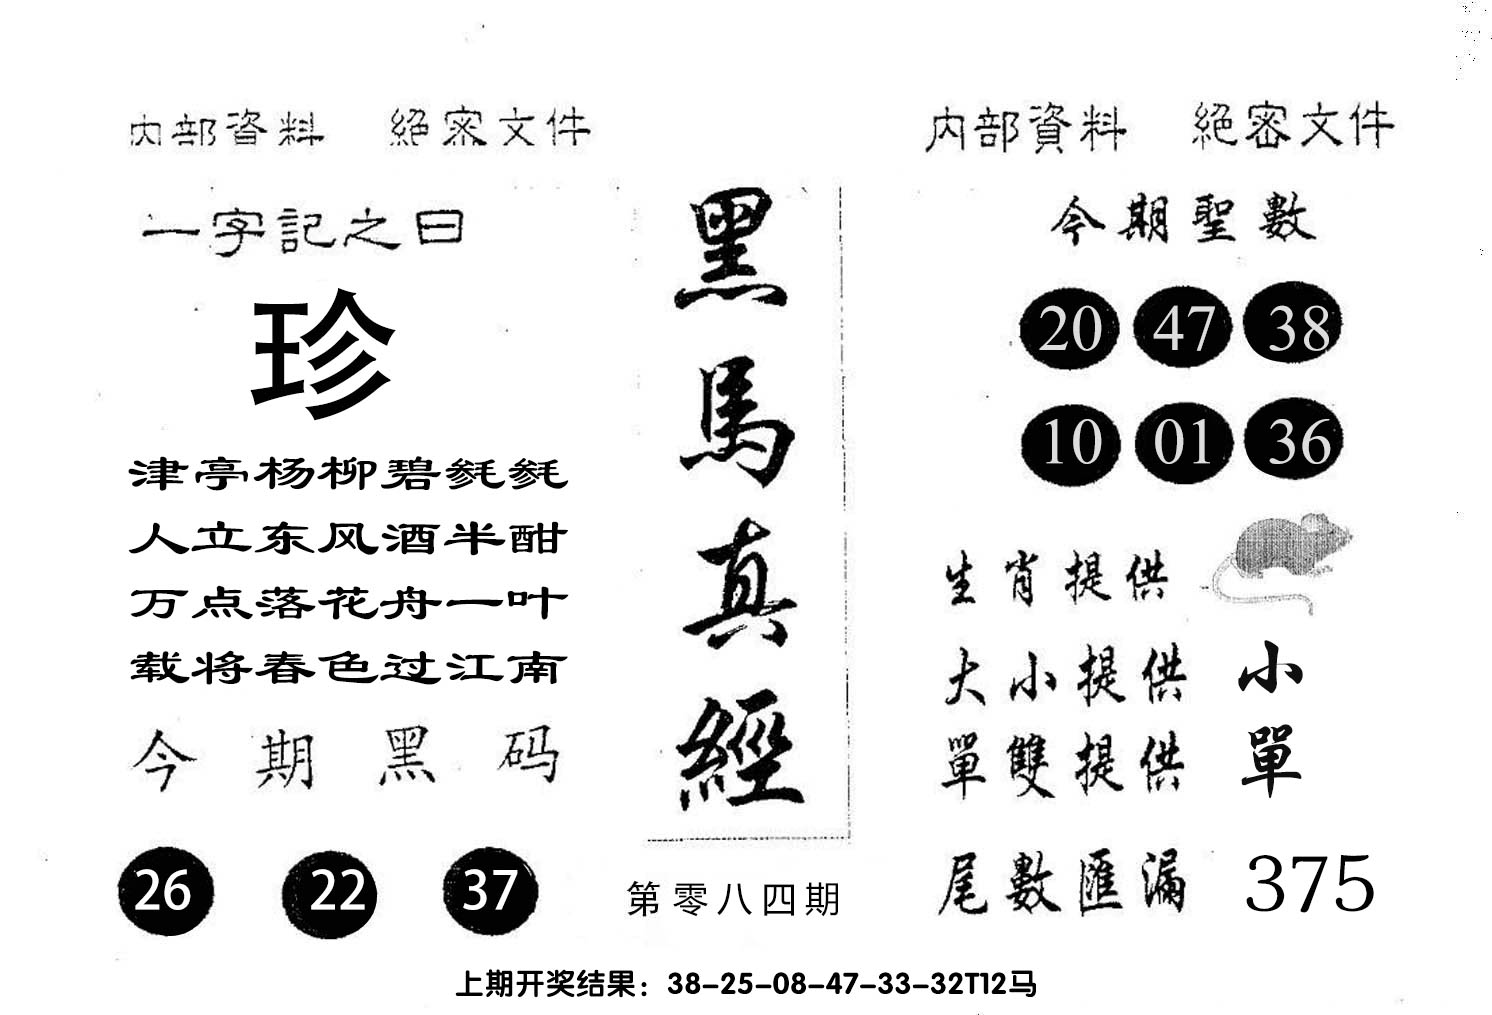 内部資料 絕密文件
一字記之曰
珍
津亭杨柳碧毵毵
人立东风酒半酣
万点落花舟一叶
载将春色过江南
今期黑码
26 22 37
黑馬真經
第零八四期
内部資料 絕密文件
今期聖數
20 47 38
10 01 36
生肖提供
大小提供 小
單雙提供 單
尾數匯漏 375
上期开奖结果：38-25-08-47-33-32T12马